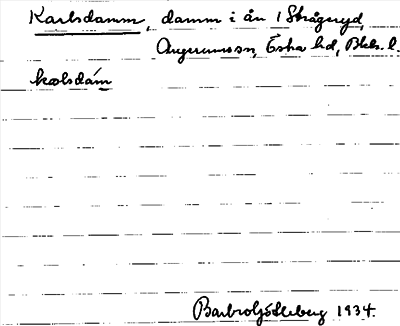 Karlsdamm, damm i ån i Strågeryd,
Angerums sn, Östra hd, Blek. l.
Barbro Götleberg 1934.